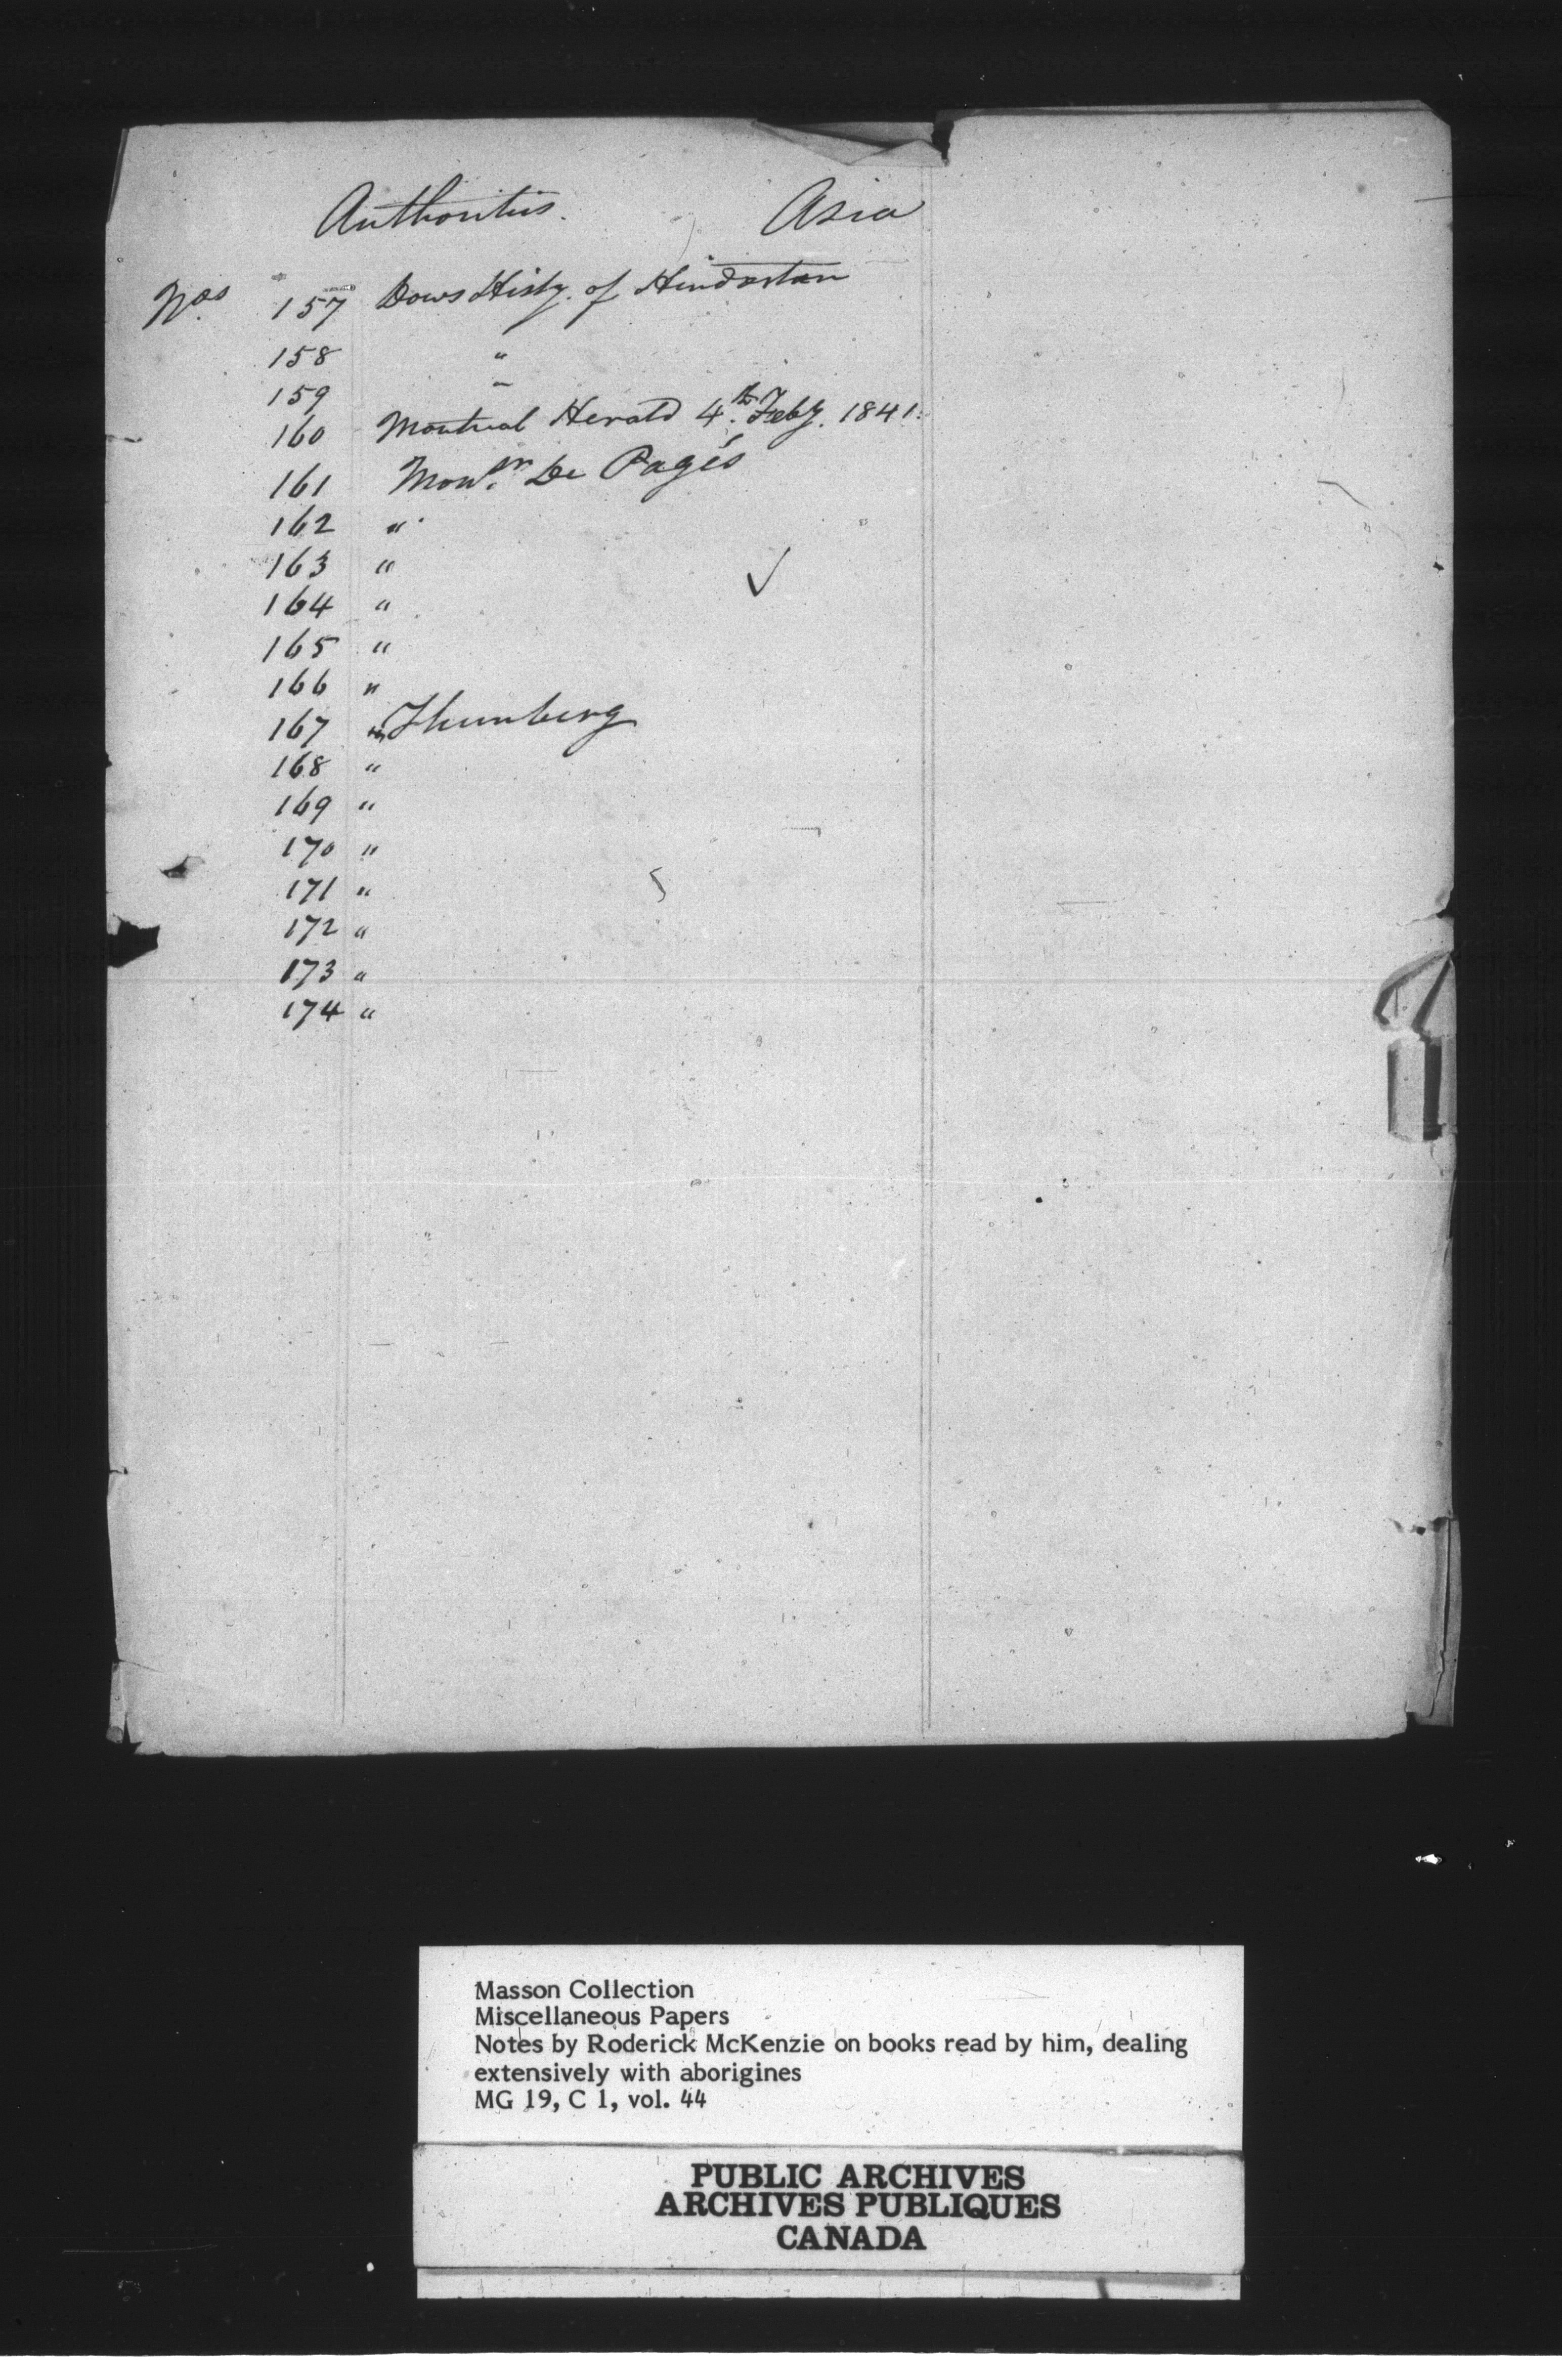 Authorities. Asia
Nos. 157 Dows Histy. of Hindostan
158 "
159 "
160 Montreal Herald 4th. Feby. 1841.
161 Monsr. De Pagés
162 "
163 "
164 "
165 "
166 "
167 " Thunberg
168 "
169 "
170 "
171 "
172 "
173 "
174 "
Masson Collection
Miscellaneous Papers
Notes by Roderick McKenzie on books read by him, dealing
extensively with aborigines
MG 19, C 1, vol. 44
PUBLIC ARCHIVES
ARCHIVES PUBLIQUES
CANADA